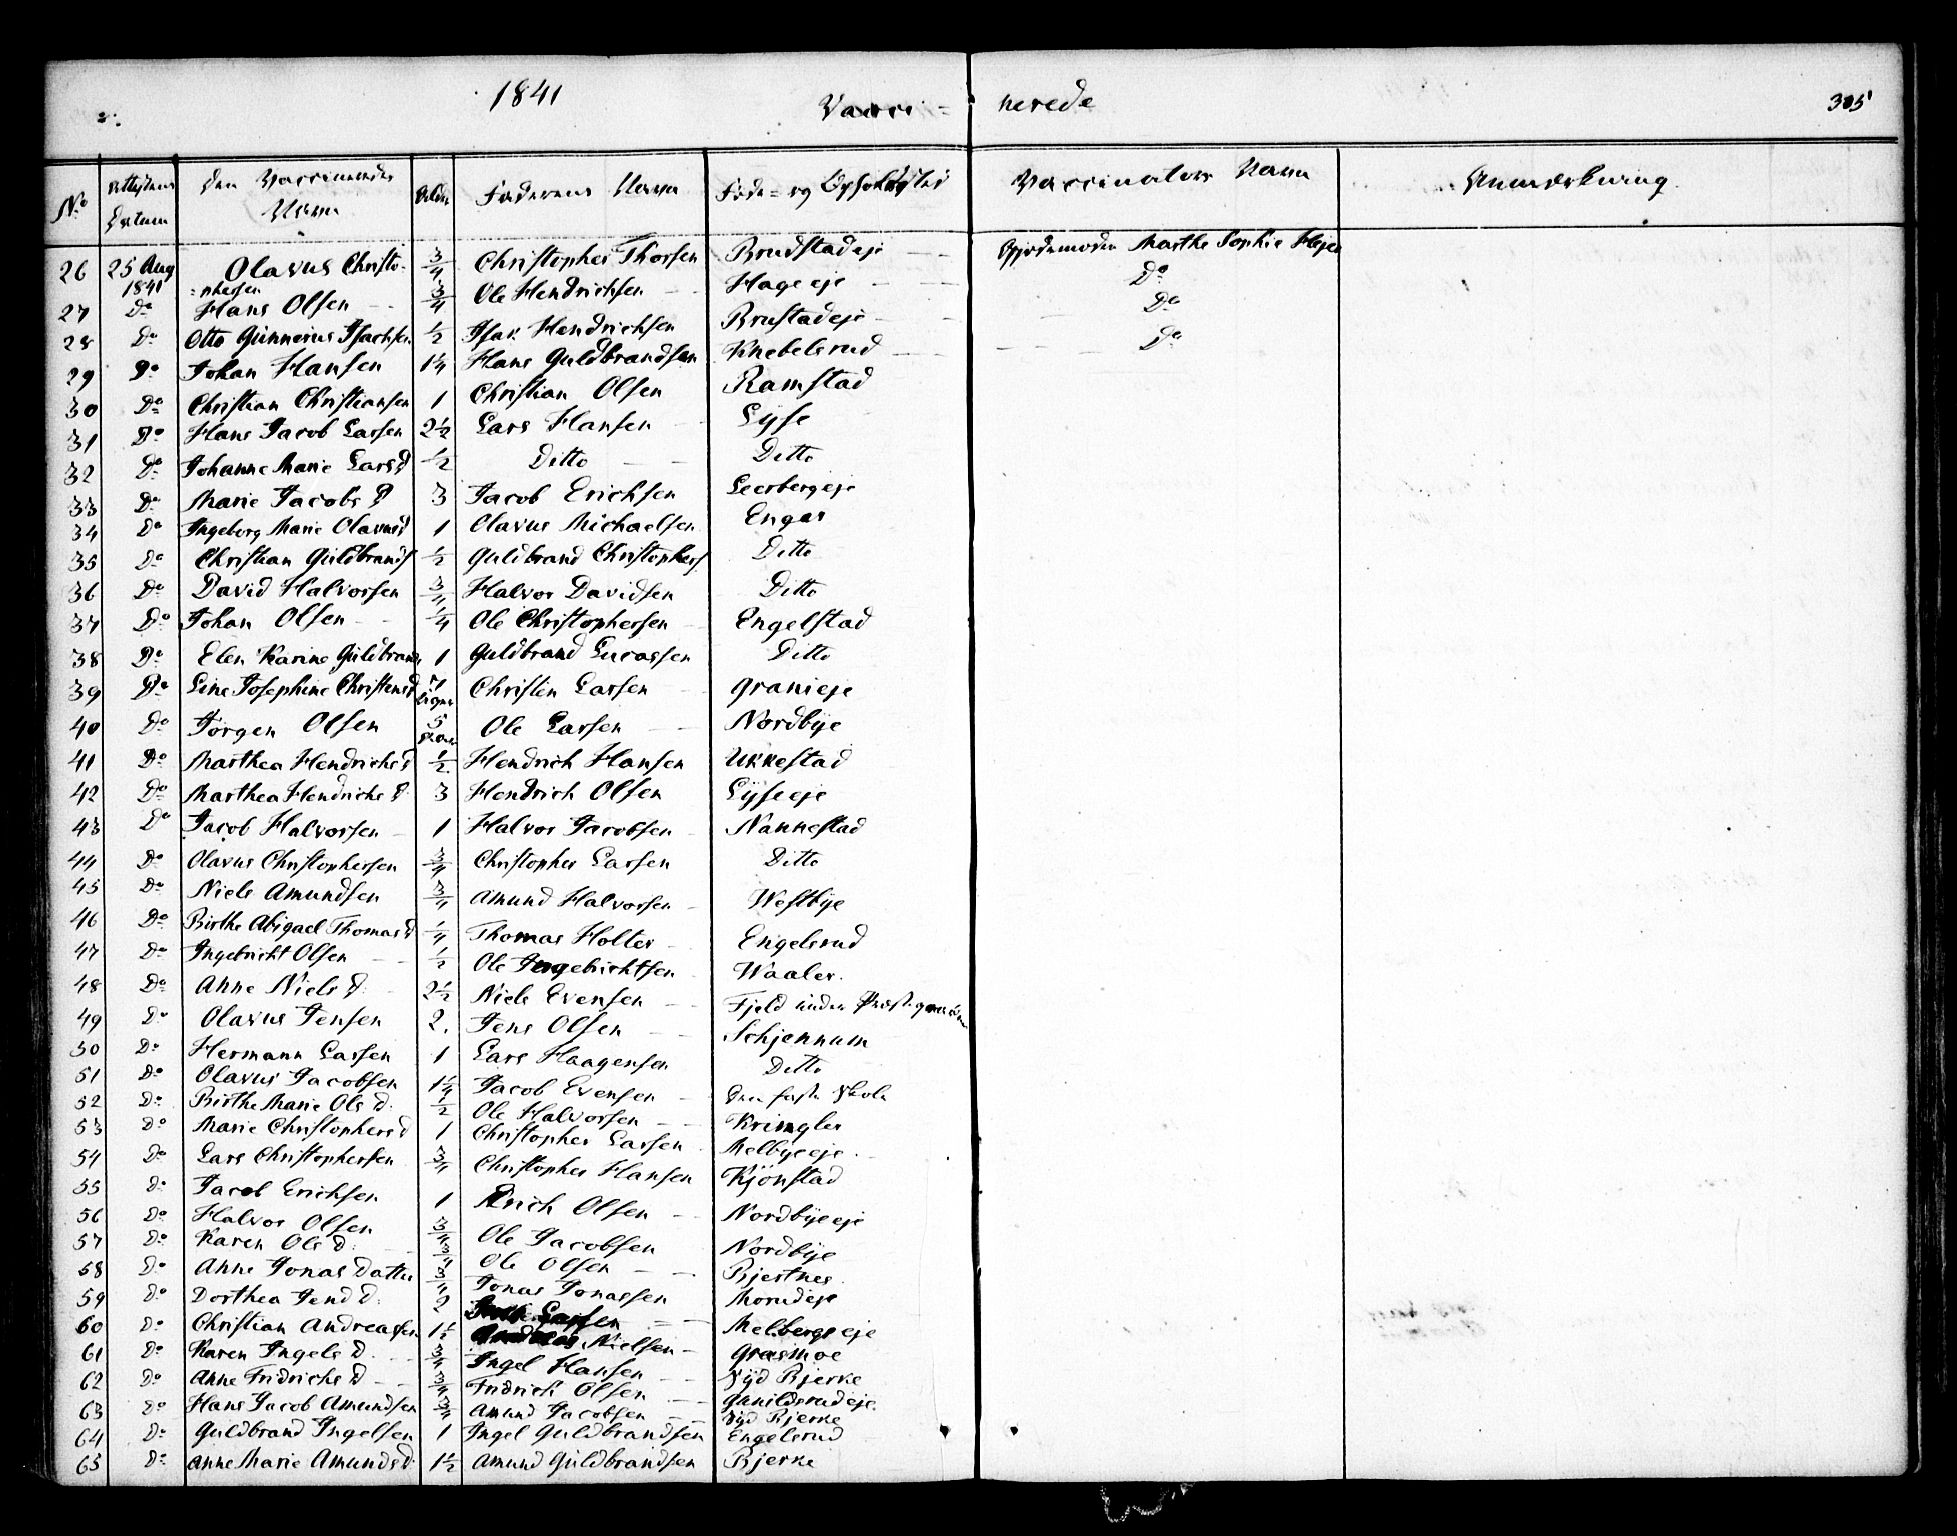 1841
Vacci= nerede 305
No Attestens Datum Den Vaccineredes Navn Alder Faderens Navn Føde= og Opholdssted Vaccinators Navn Anmærkning.
26 25 Aug 1841 Olavus Christo=phersen 3/4 Christopher Thorsen Brudstadeje Gjordemoder Marthe Sophie
27 Do Hans Olsen 3/4 Ole Hendrichsen Hageeje Do
28 Do Otto Gunnerius Isachsen 1/2 Isak Hendrichsen Brustadeje Do
29 Do Johan Hansen 1 1/4 Hans Guldbrandsen Knebelsrud Do
30 Do Christian Christiansen 1 Christian Olsen Ramstad
31 Do Hans Jacob Larsen 2 1/2 Lars Hansen Lyse
32 Do Johanne Marie Larsd 1/2 Ditto Ditto
33 Do Marie Jacobs D 3 Jacob Erichsen Leerbergeje
34 Do Ingeborg Marie Olavusd 1 Olavus Michaelsen Enger
35 Do Christian Guldbrands 1/2 Guldbrand Christophers Ditto
36 Do David Halvorsen 3/4 Halvor Davidsen Ditto
37 Do Johan Olsen 1/4 Ole Christophersen Engelstad
38 Do Elen Karine Guldbrands 1 Guldbrand Lucassen Ditto
39 Do Line Josephine Christensd Christen Larsen Granieje
40 Do Jörgen Olsen 5 Ole Larsen Nordbye
41 Do Marthea Hendrichsd 1/2 Hendrich Hansen Ukkestad
42 Do Marthea Hendrichs D 3 Hendrich Olsen Lyseeje
43 Do Jacob Halvorsen 1 Halvor Jacobsen Nannestad
44 Do Olavus Christophersen 3/4 Christopher Larsen Ditto
45 Do Niels Amundsen 3/4 Amund Halvorsen Westbye
46 Do Birthe Abigael Thomasd 1/4 Thomas Holter Engelsrud
47 Do Ingebricht Olsen 1/2 Ole Ingebrichtsen Waaler.
48 Do Anne Niels D. 2 1/2 Niels Evensen Fjeld under Præstegaarden
49 Do Olavus Jensen 2. Jens Olsen Schjennum
50 Do Hermann Larsen 1 Lars Haagensen Ditto
51 Do Olavus Jacobsen 1 1/4 Jacob Evensen Den faste Skole
52 Do Birthe Marie Ols D. 1/2 Ole Halvorsen Kringler
53 Do Marie Christophersd 1 Christopher Larsen Melbyeeje
54 Do Lars Christophersen 3/4 Christopher Hansen Kjönstad
55 Do Jacob Erichsen 1 Erich Olsen Nordbyeeje
56 Do Halvor Olsen 3/4 Ole Jacobsen Nordbye
57 Do Karen Ols D. 3/4 Ole Olsen Bjertnes
58 Do Anne Jonas Datter 3/4 Jonas Jonassen Morudeje
59 Do Dorthea Jens D. 2 Larsen Melbergseje
60 Do Christian Andreassen 1 1/2 Andreas Nielsen Græsmoe
61 Do Karen Ingels D. 3/4 Ingel Hansen Syd Bjerke
62 Do Anne Fridrichs D 3/4 Fridrich Olsen Gunildsrudeje.
63 Do Hans Jacob Amundsen 3/4 Amund Jacobsen Syd Bjerke
64 Do Guldbrand Ingelsen 1 Ingel Guldbrandsen Engelsrud
65 Do Anne Marie Amundsd 1 1/2 Amund Guldbrandsen Bjerke